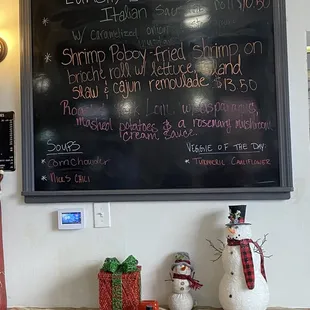 Italian
$10.50
w/ Caramelized onion
Shrimp Poboy - fried shrimp on
broche roll w/ lettuce
and
slaw & cajun remoulade $13.50
w/ asparagus,
mashed potatoes & a rosemary mushroom
cream sauce.
Soups
* Corn Chowder
* Nick's Chili
Veggie of the Day:
* Turmeric Cauliflower